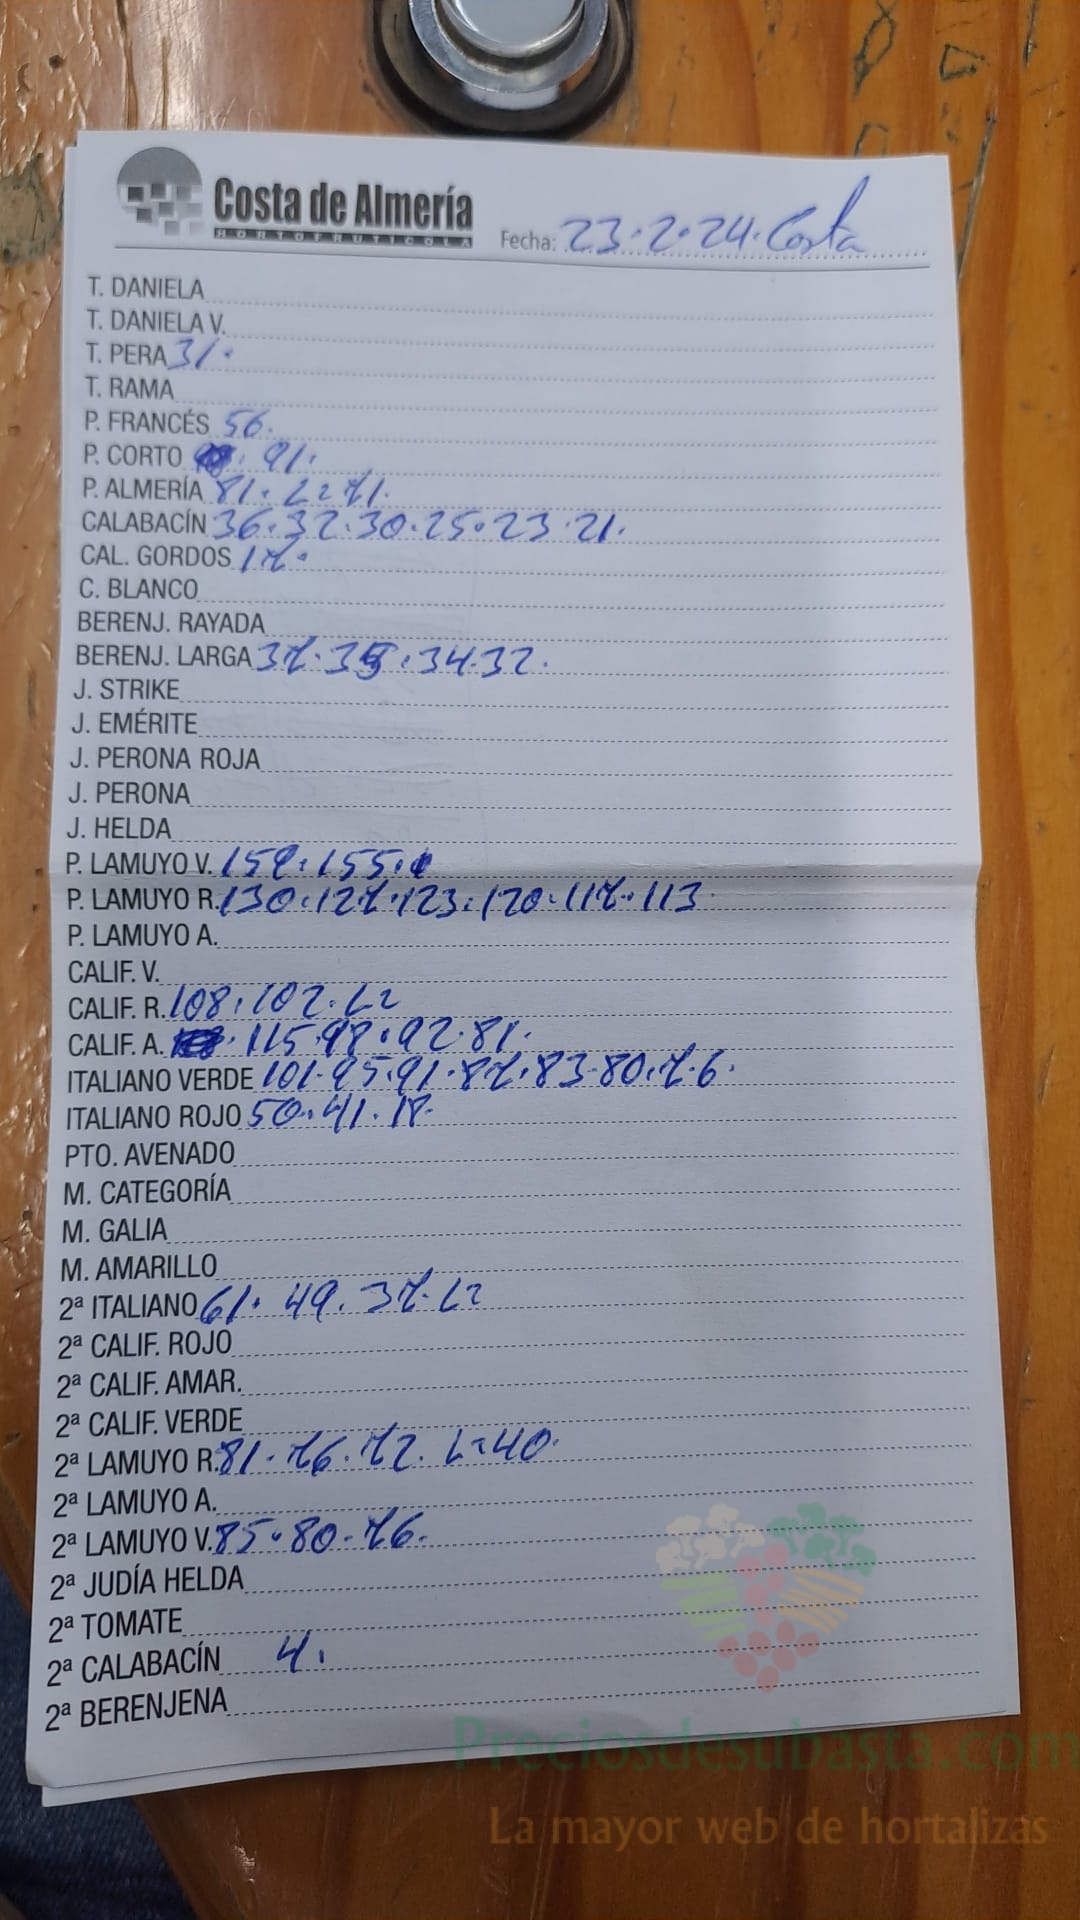 Costa de Almería
HORTOFRUTICOLA
Fecha: 23.2.24. Costa
T. DANIELA
T. DANIELA V.
T. PERA 31.
T. RAMA
P. FRANCÉS 56.
P. CORTO 91.
P. ALMERÍA 81. L2 71.
CALABACÍN 36.32.30.25.23.21.
CAL. GORDOS 17.
C. BLANCO
BERENJ. RAYADA
BERENJ. LARGA 37.35.34.32.
J. STRIKE
J. EMÉRITE
J. PERONA ROJA
J. PERONA
J. HELDA
P. LAMUYO V. 159.155.
P. LAMUYO R. 130.127.123.120.117.113
P. LAMUYO A.
CALIF. V.
CALIF. R. 108.102.L2
CALIF. A. 115.98.92.81.
ITALIANO VERDE 101.95.91.87.83.80.7.6.
ITALIANO ROJO 50.41.18.
PTO. AVENADO
M. CATEGORÍA
M. GALIA
M. AMARILLO
2ª ITALIANO 61. 49. 37. L2
2ª CALIF. ROJO
2ª CALIF. AMAR.
2ª CALIF. VERDE
2ª LAMUYO R. 81.76.72. L2 40.
2ª LAMUYO A.
2ª LAMUYO V. 85.80.76.
2ª JUDÍA HELDA
2ª TOMATE
2ª CALABACÍN 4.
2ª BERENJENA
Preciosdesubasta.com
La mayor web de hortalizas